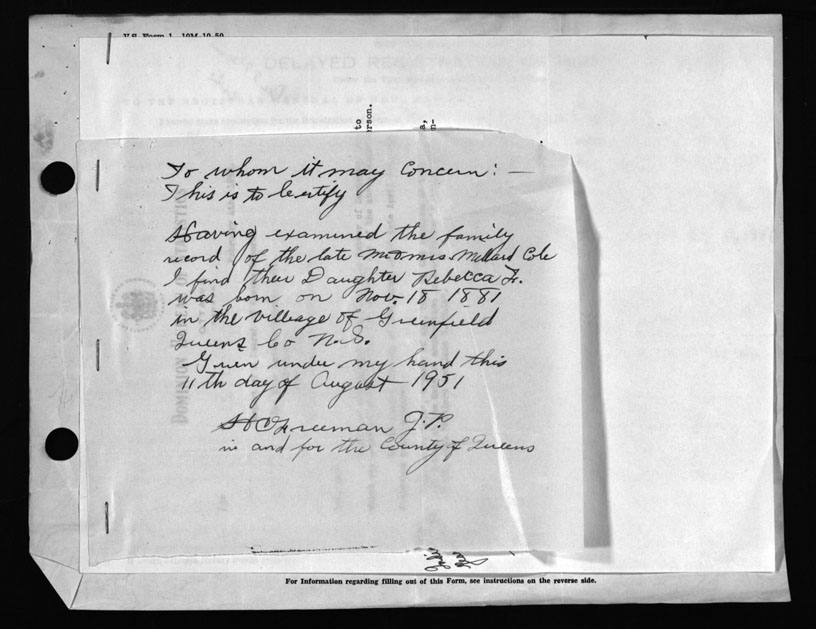 V.S. Form 1 10M-10-50
DELAYED
to
erson.
To whom it may Concern: —
This is to Certify
Having examined the family
record of the late Mr & Mrs Millard Cole
I find their Daughter Rebecca F.
was born on Nov. 18 1881
in the villeage of Greenfield
Queens Co N.S.
Given under my hand this
11th day of August 1951
Freeman J.P.
in and for the County of Queens
For Information regarding filling out of this Form, see instructions on the reverse side.